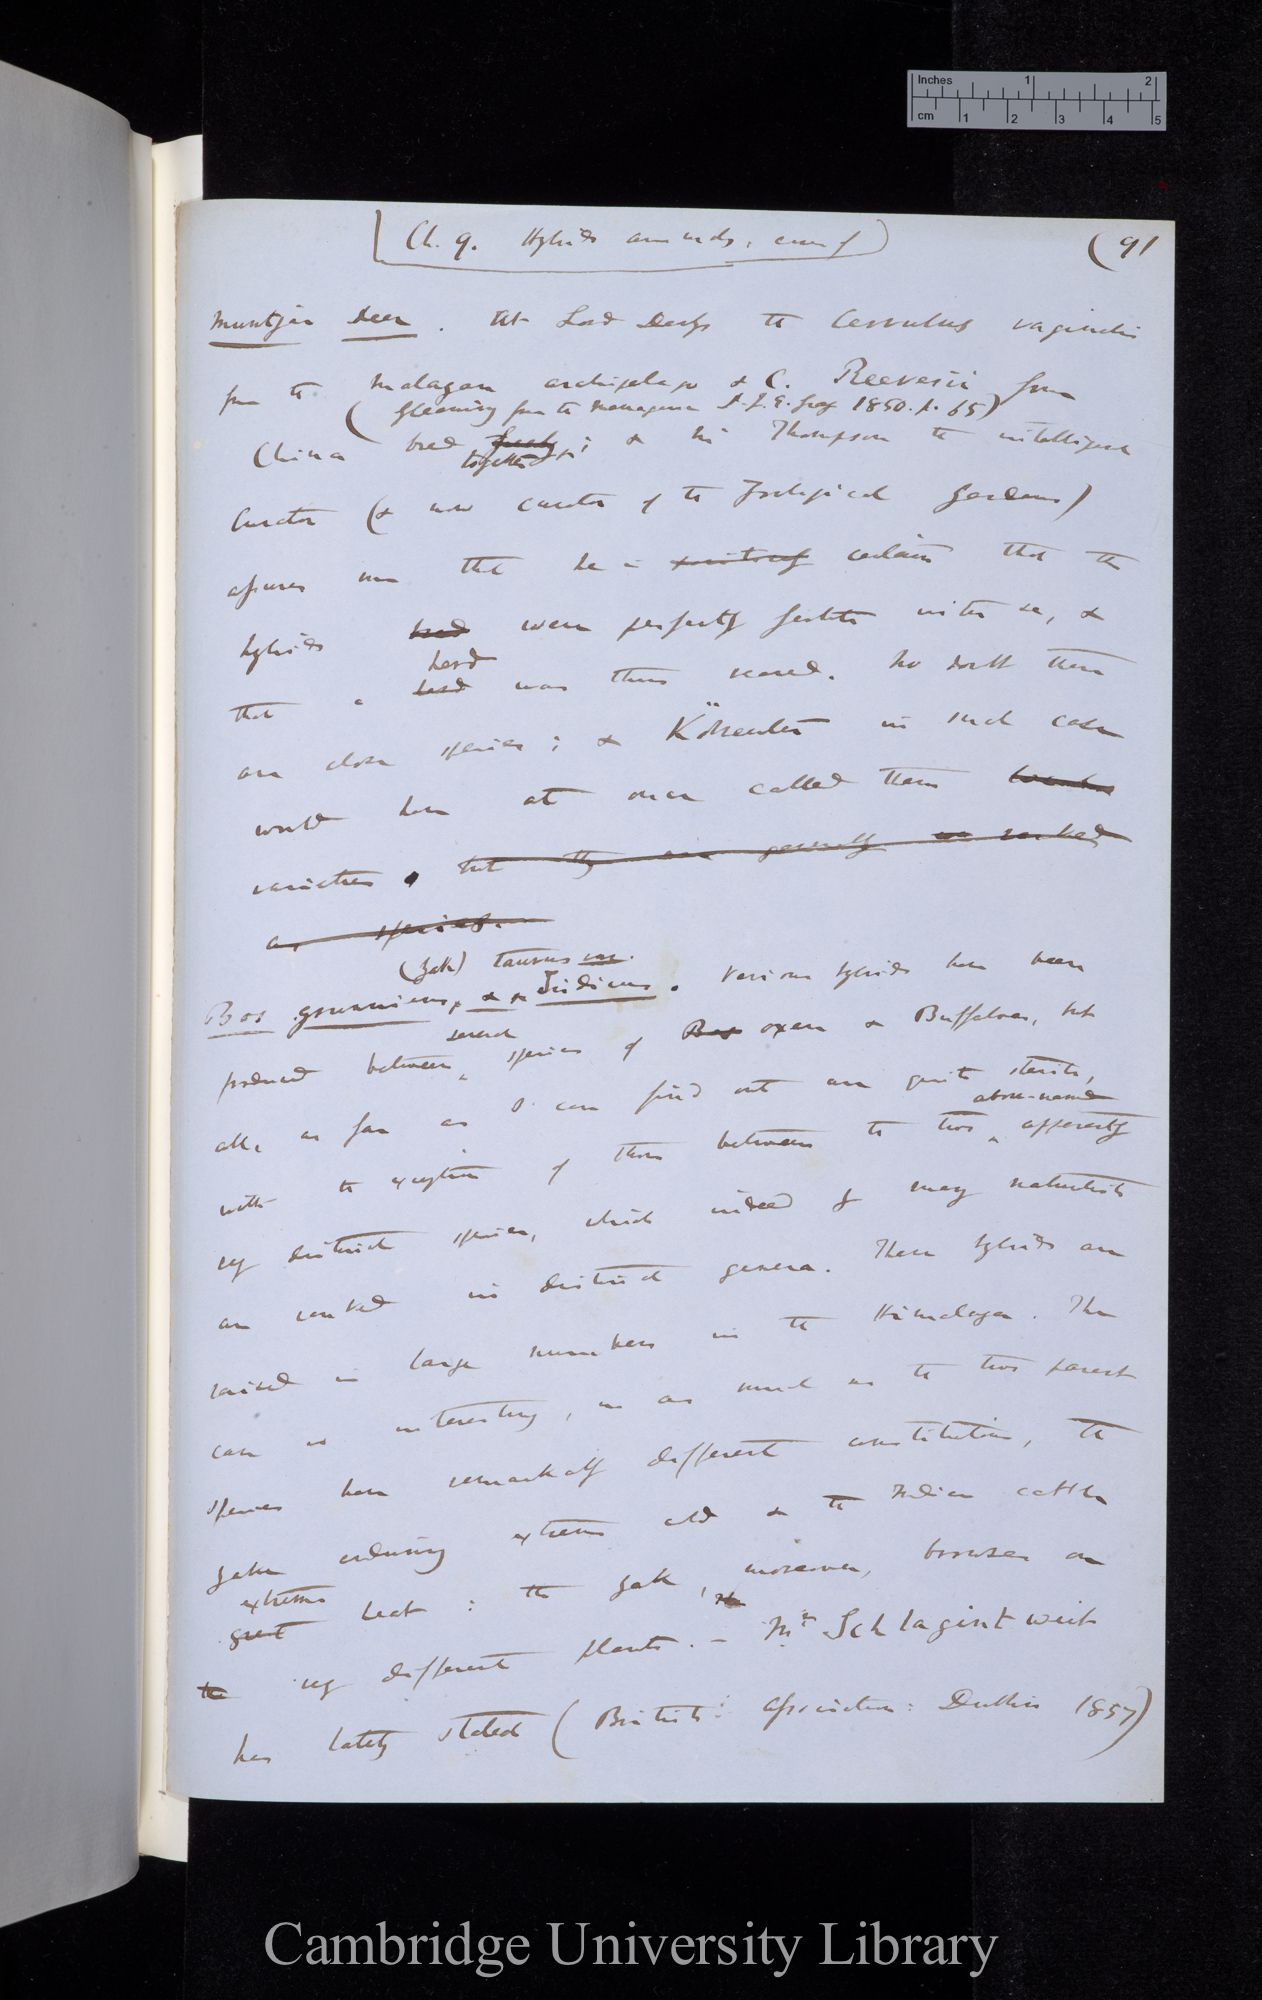 Inches 1 2
cm 1 2 3 4 5
Ch. 9. Hybrids animals,
(91
Muntjac Deer. At Lord Derby the Cervulus vaginalis
from the Malayan archipelago & C. Reevesii from
(Gleanings from the Menagerie J. E. Gray 1850. p. 65)
China bred freely; & Mr Thompson the intelligent
together
Curator (& now curator of the Zoological Gardens)
assures me that he is certain that the
hybrids bred were perfectly fertile inter se, &
herd
that a herd was thus reared. No doubt these
are close species; & Kölreuter in such case
would have at once called them
varieties. but they are generally ranked
as species.
(Yak) taurus var.
Bos grunniens, & Indicus. Various hybrids have been
several
produced between species of Bos oxen & Buffaloes, but
all, as far as I can find out are quite sterile,
above-named
with the exception of those between the two apparently
very distinct species, which indeed by many naturalists
are ranked in distinct genera. These hybrids are
raised in large numbers in the Himalaya. The
case is interesting, in as much as the two parent
species have remarkably different constitutions, the
Yak enduring extreme cold & the Indian cattle
extreme
great heat: the Yak, moreover, browses on
the very different plants. — Mr. Schlagintweit
has lately stated (British: Association: Dublin 1857)
Cambridge University Library